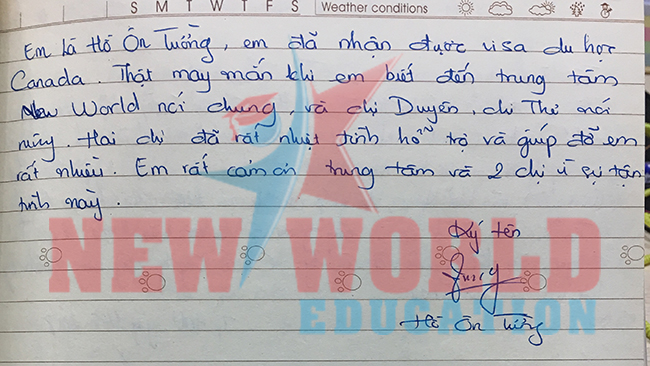 S M T W T F S Weather conditions
Em là Hồ Ôn Tường, em đã nhận được visa du học
Canada. Thật may mắn khi em biết đến trung tâm
New World nói chung, và chị Duyên, chị Thư nói
riêng. Hai chị đã rất nhiệt tình hỗ trợ và giúp đỡ em
rất nhiều. Em rất cảm ơn trung tâm và 2 chị vì sự tận
tình này.
Ký tên
Hồ Ôn Tường
NEW WORLD
EDUCATION